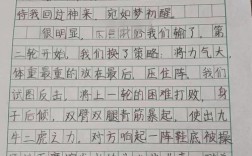 待我回过神来，宛如梦初醒。
很明显，下的我们输了。第
二轮开始，我们换了策略：将力气大、
体重最重的放在最后，压住阵。我们
试图反击，将上一轮的困难打败，身
子后倾，双臂双腿青筋暴起，使出九
牛二虎之力。对方响起一阵鞋底被操